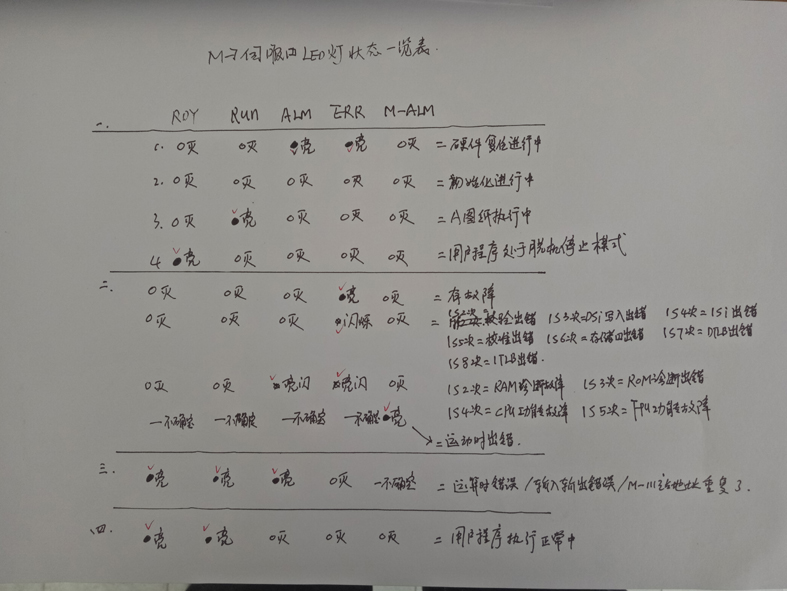 LED灯状态一览表.
一. RDY Run ALM ERR M-ALM
1. O灭 O灭 ●亮 ●亮 O灭 =硬件复位进行中
2. O灭 O灭 O灭 O灭 O灭 =初始化进行中
3. O灭 ●亮 O灭 O灭 O灭 =A图纸执行中
4 ●亮 O灭 O灭 O灭 O灭 =用户程序处于脱机停止模式
二. O灭 O灭 O灭 ●亮 O灭 =存故障
O灭 O灭 O灭 ●闪烁 O灭 = 校验出错 1S3次=DSi写入出错 1S4次=iSi出错
1S5次=校准出错 1S6次=存储四出错 1S7次=DTLB出错
1S8次=ITLB出错.
O灭 O灭 ●亮闪 ●亮闪 O灭 1S2次=RAM诊断故障 1S3次=ROM诊断出错
一不确定 一不确定 一不确定 一不确定 ●亮 1S4次=CPU功能故障 1S5次=FPU功能故障
=运动时出错.
三. ●亮 ●亮 ●亮 O灭 一不确定 =运算时错误/输入输出错误/M-III站地址重复了.
四. ●亮 ●亮 O灭 O灭 O灭 =用户程序执行正常中